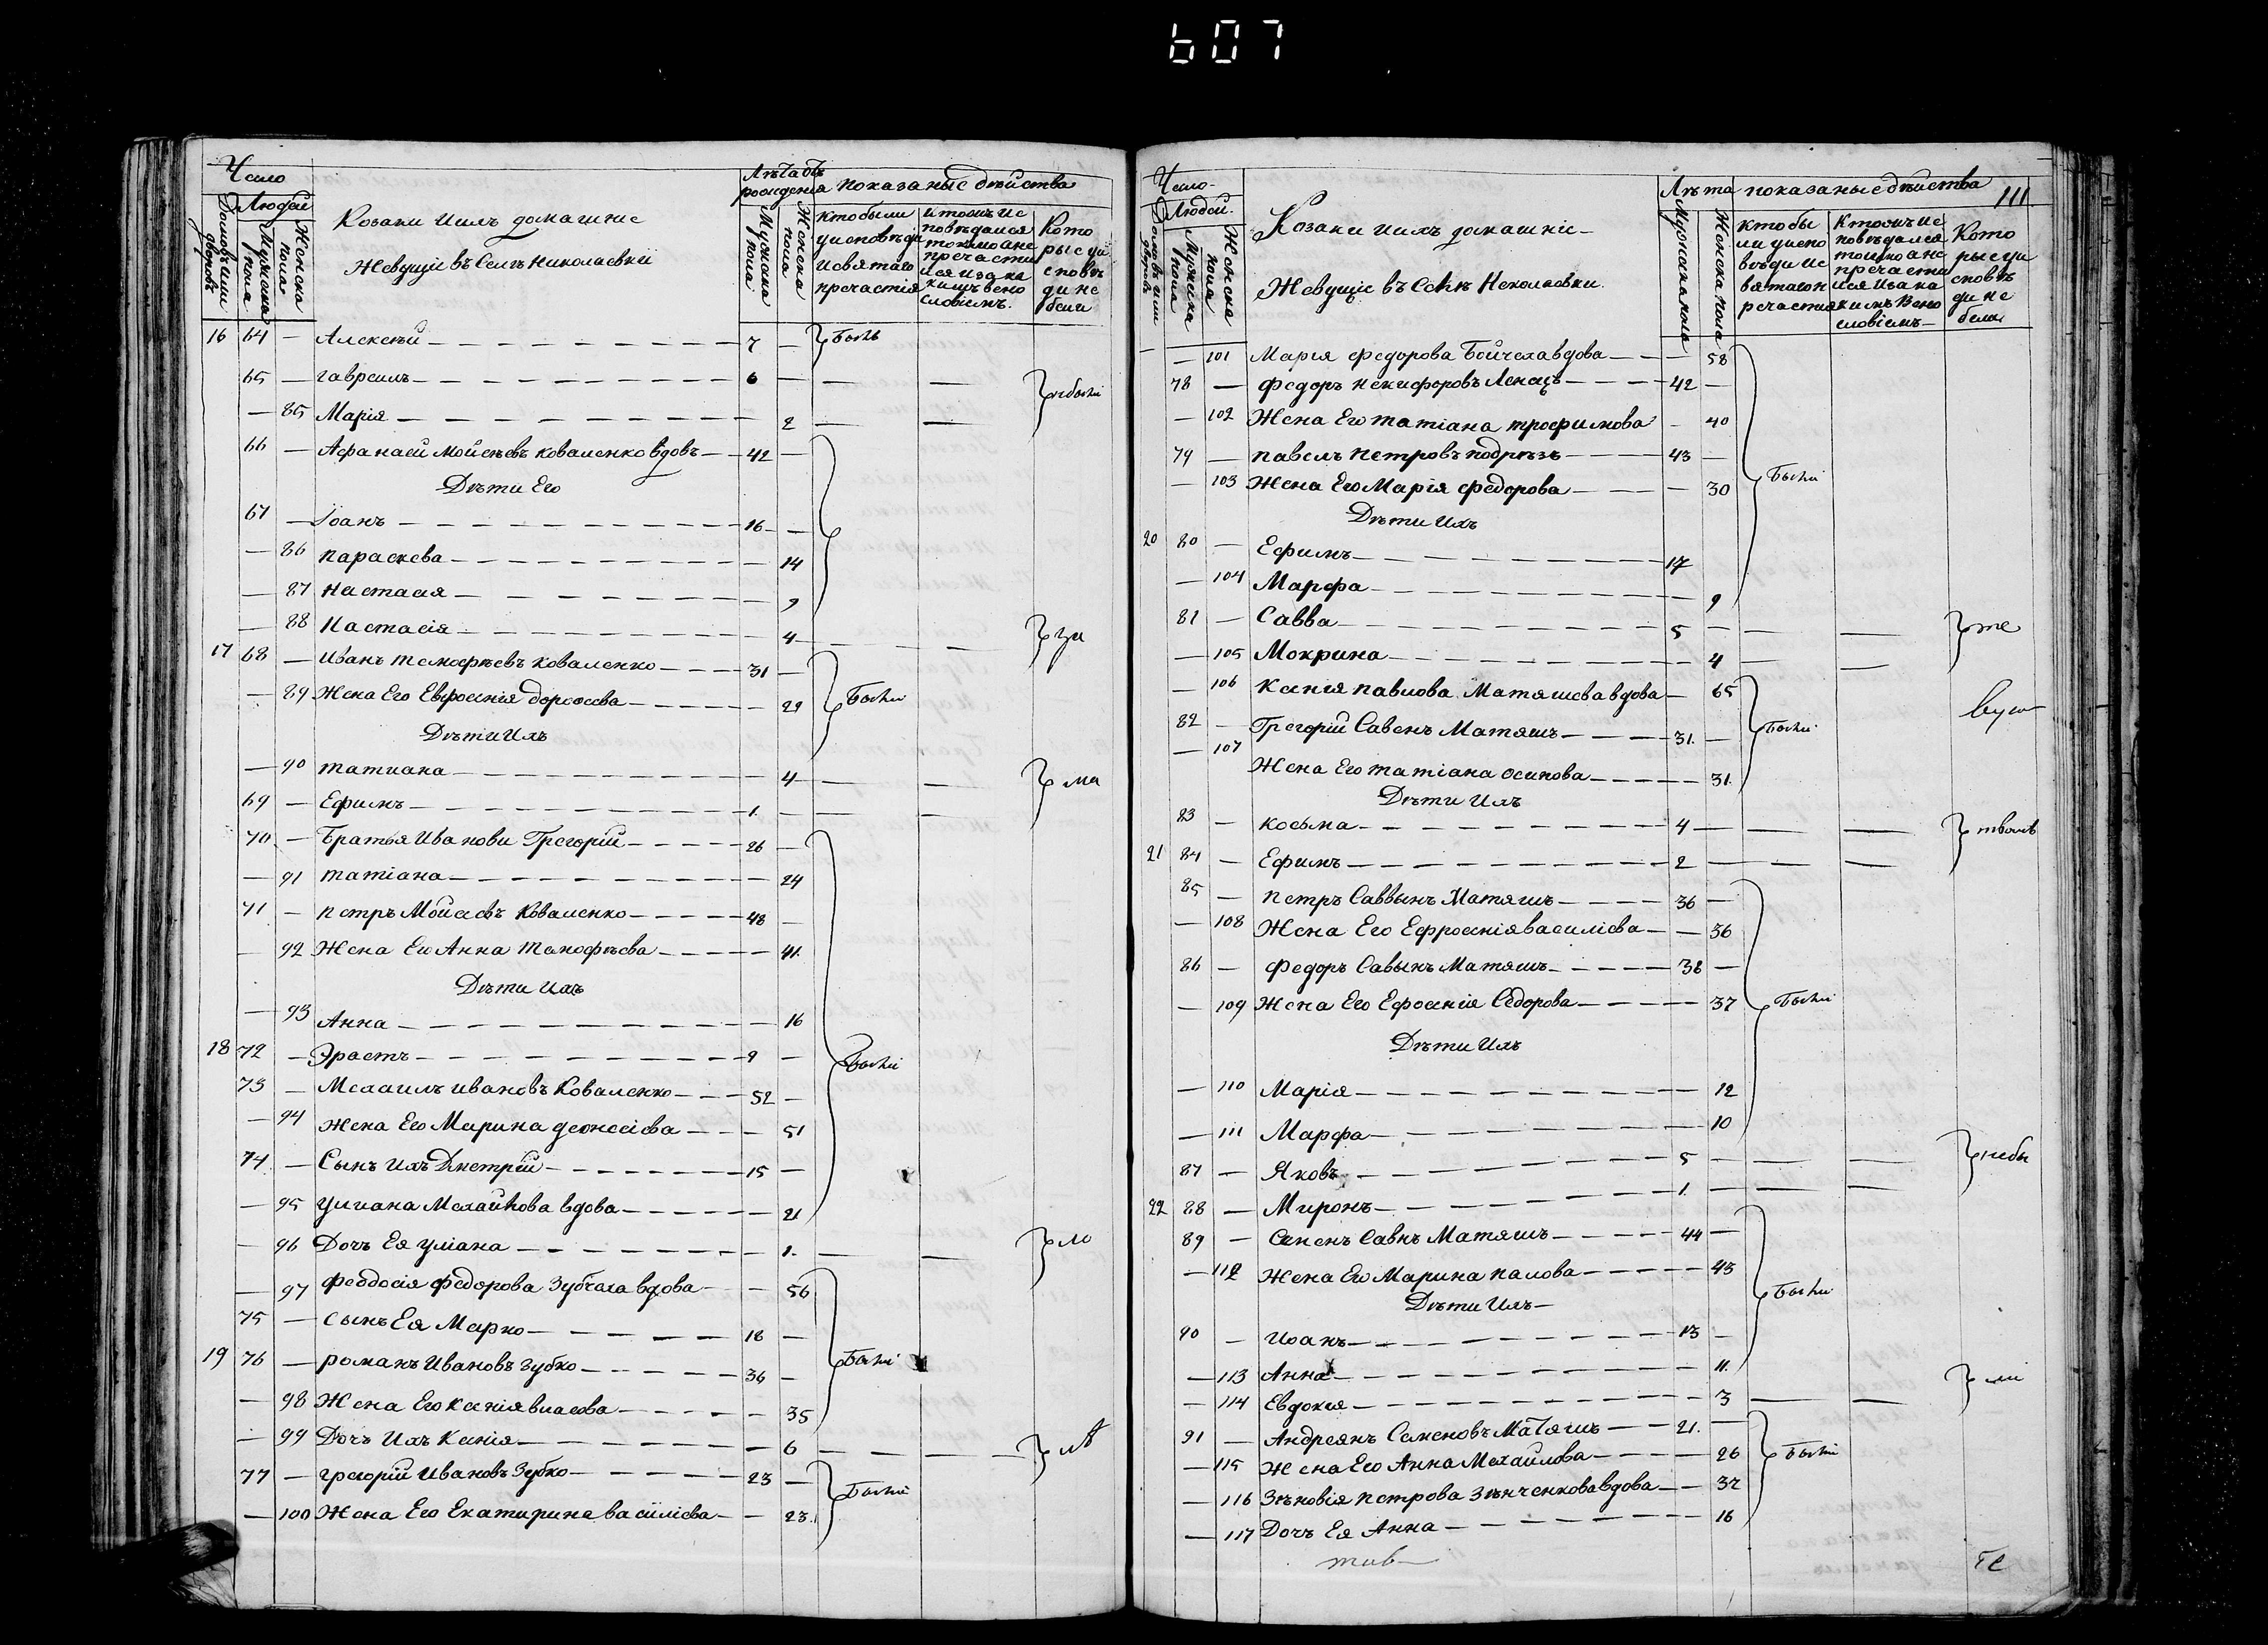 607
Число
Людей
Домовъ или дворовъ
Мужеска пола
Женска пола
Козаки и ихъ домашние
Жевущіе въ Селѣ Николаевкіи
Лѣта отъ рождения
Мужеска пола
Женска пола
показаные дѣйства
кто были у исповѣди и святаго причастія
Кото рые у и сповѣ ди не были
16 64 — Алексѣй — 7 — Былъ
65 — гавреилъ — 6 — — — небыли
— 85 Марія — 2 — —
66 — Афанасий Мойсѣевъ Коваленко вдовъ — 42 —
Дѣти Его
67 — Іоанъ — 16 —
— 86 параскева — 14
— 87 Настасия — 9
— 88 Настасія — 4 — — за
17 68 — Иванъ темофѣевъ Коваленко — 31 —
— 89 Жена Его Евфросинія дороѳеева — 29 Были
Дѣти Ихъ
— 90 татиана — 4 — — ма
69 — Ефимъ — 1. — — —
70 — Братья Иванови Грегорій — 26 —
— 91 татіана — 24
71 — петръ Мойсеевъ Коваленко — 48 —
— 92 Жена Его Анна Темофѣева — 41.
Дѣти Ихъ
— 93 Анна — 16
18 72 — Эрастъ — 9 — Были
73 — Мехаилъ ивановъ Коваленко — 52 —
— 94 Жена Его Марина деонесіева — 51
74. — Сынъ ихъ Дметрій — 15 —
— 95 Улиана Мехайлова вдова — 21
— 96 Дочъ Ея уліана — 1. — — ло
— 97 Феодосія Федорова Зубчиха вдова — 56
75 — сынъ Ея Марко — 18 —
19 76 — романъ Ивановъ Зубко — 36 — Были
— 98 Жена Его Ксенія власова — 35
— 99 Дочъ Ихъ Ксенія — 6 — — лѣ
77 — грегорій Ивановъ Зубко — 23 — Были
— 100 Жена Его Екатирина василіева — 23.
Число
Людей.
Домовъ или дворовъ
Мужеска пола
Женска пола
Козаки и ихъ домашніе
Жевущіе въ Селѣ Неколаевки.
Лѣта
Мужеска пола
Женска пола
показаные дѣйства
111
кто бы ли у испо вѣди и с вятаго п речастия
Кото рые у и сповѣ ди не были
— 101 Мария федорова Бойчеха вдова — 58
78 — федоръ Некифоровъ Ленецъ — 42 —
— 102 Жена Его татіана трофимова — 40
79 — павелъ петровъ подрѣзъ — 43 —
— 103 Жена Его Марія федорова — 30 Были
Дѣти Ихъ
20 80 — Ефимъ — 17
— 104 Марфа — 9
81 — Савва — 5 — — — те
— 105 Мокрина — 4 — —
— 106 Ксения павлова Матяшева вдова — 65
82 — Грегорій Савенъ Матяшъ — 31. — Были
— 107 Жена Его татіана осипова — 31.
Дѣти Ихъ
83 — косьма — 4 — — —
21 84 — Ефимъ — 2 — — —
85 — петръ Саввынъ Матяшъ — 36 —
— 108 Жена Его Ефросинія василіева — 36
86 — федоръ Савынъ Матяшъ — 38 —
— 109 Жена Его Ефросинія Седорова — 37 Были
Дѣти Ихъ
— 110 Марія — 12
— 111 Марфа — 10
87 — Яковъ — 5 — — — небы
22 88 — Миронъ — 1. — — —
89 — Семенъ Савнъ Матяшъ — 44 —
— 112 Жена Его Марина палова — 43
Дѣти Ихъ — Были
90 — Иоанъ — 13 —
— 113 Анна — 11.
— 114 Евдокия — 3 — — ли
91 — Андреянъ Семеновъ Матяшъ — 21. —
— 115 Жена Его Анна Мехайлова — 26 Были
— 116 Зѣновія петрова Зѣнченкова вдова — 32
— 117 Дочъ Ея Анна — 16